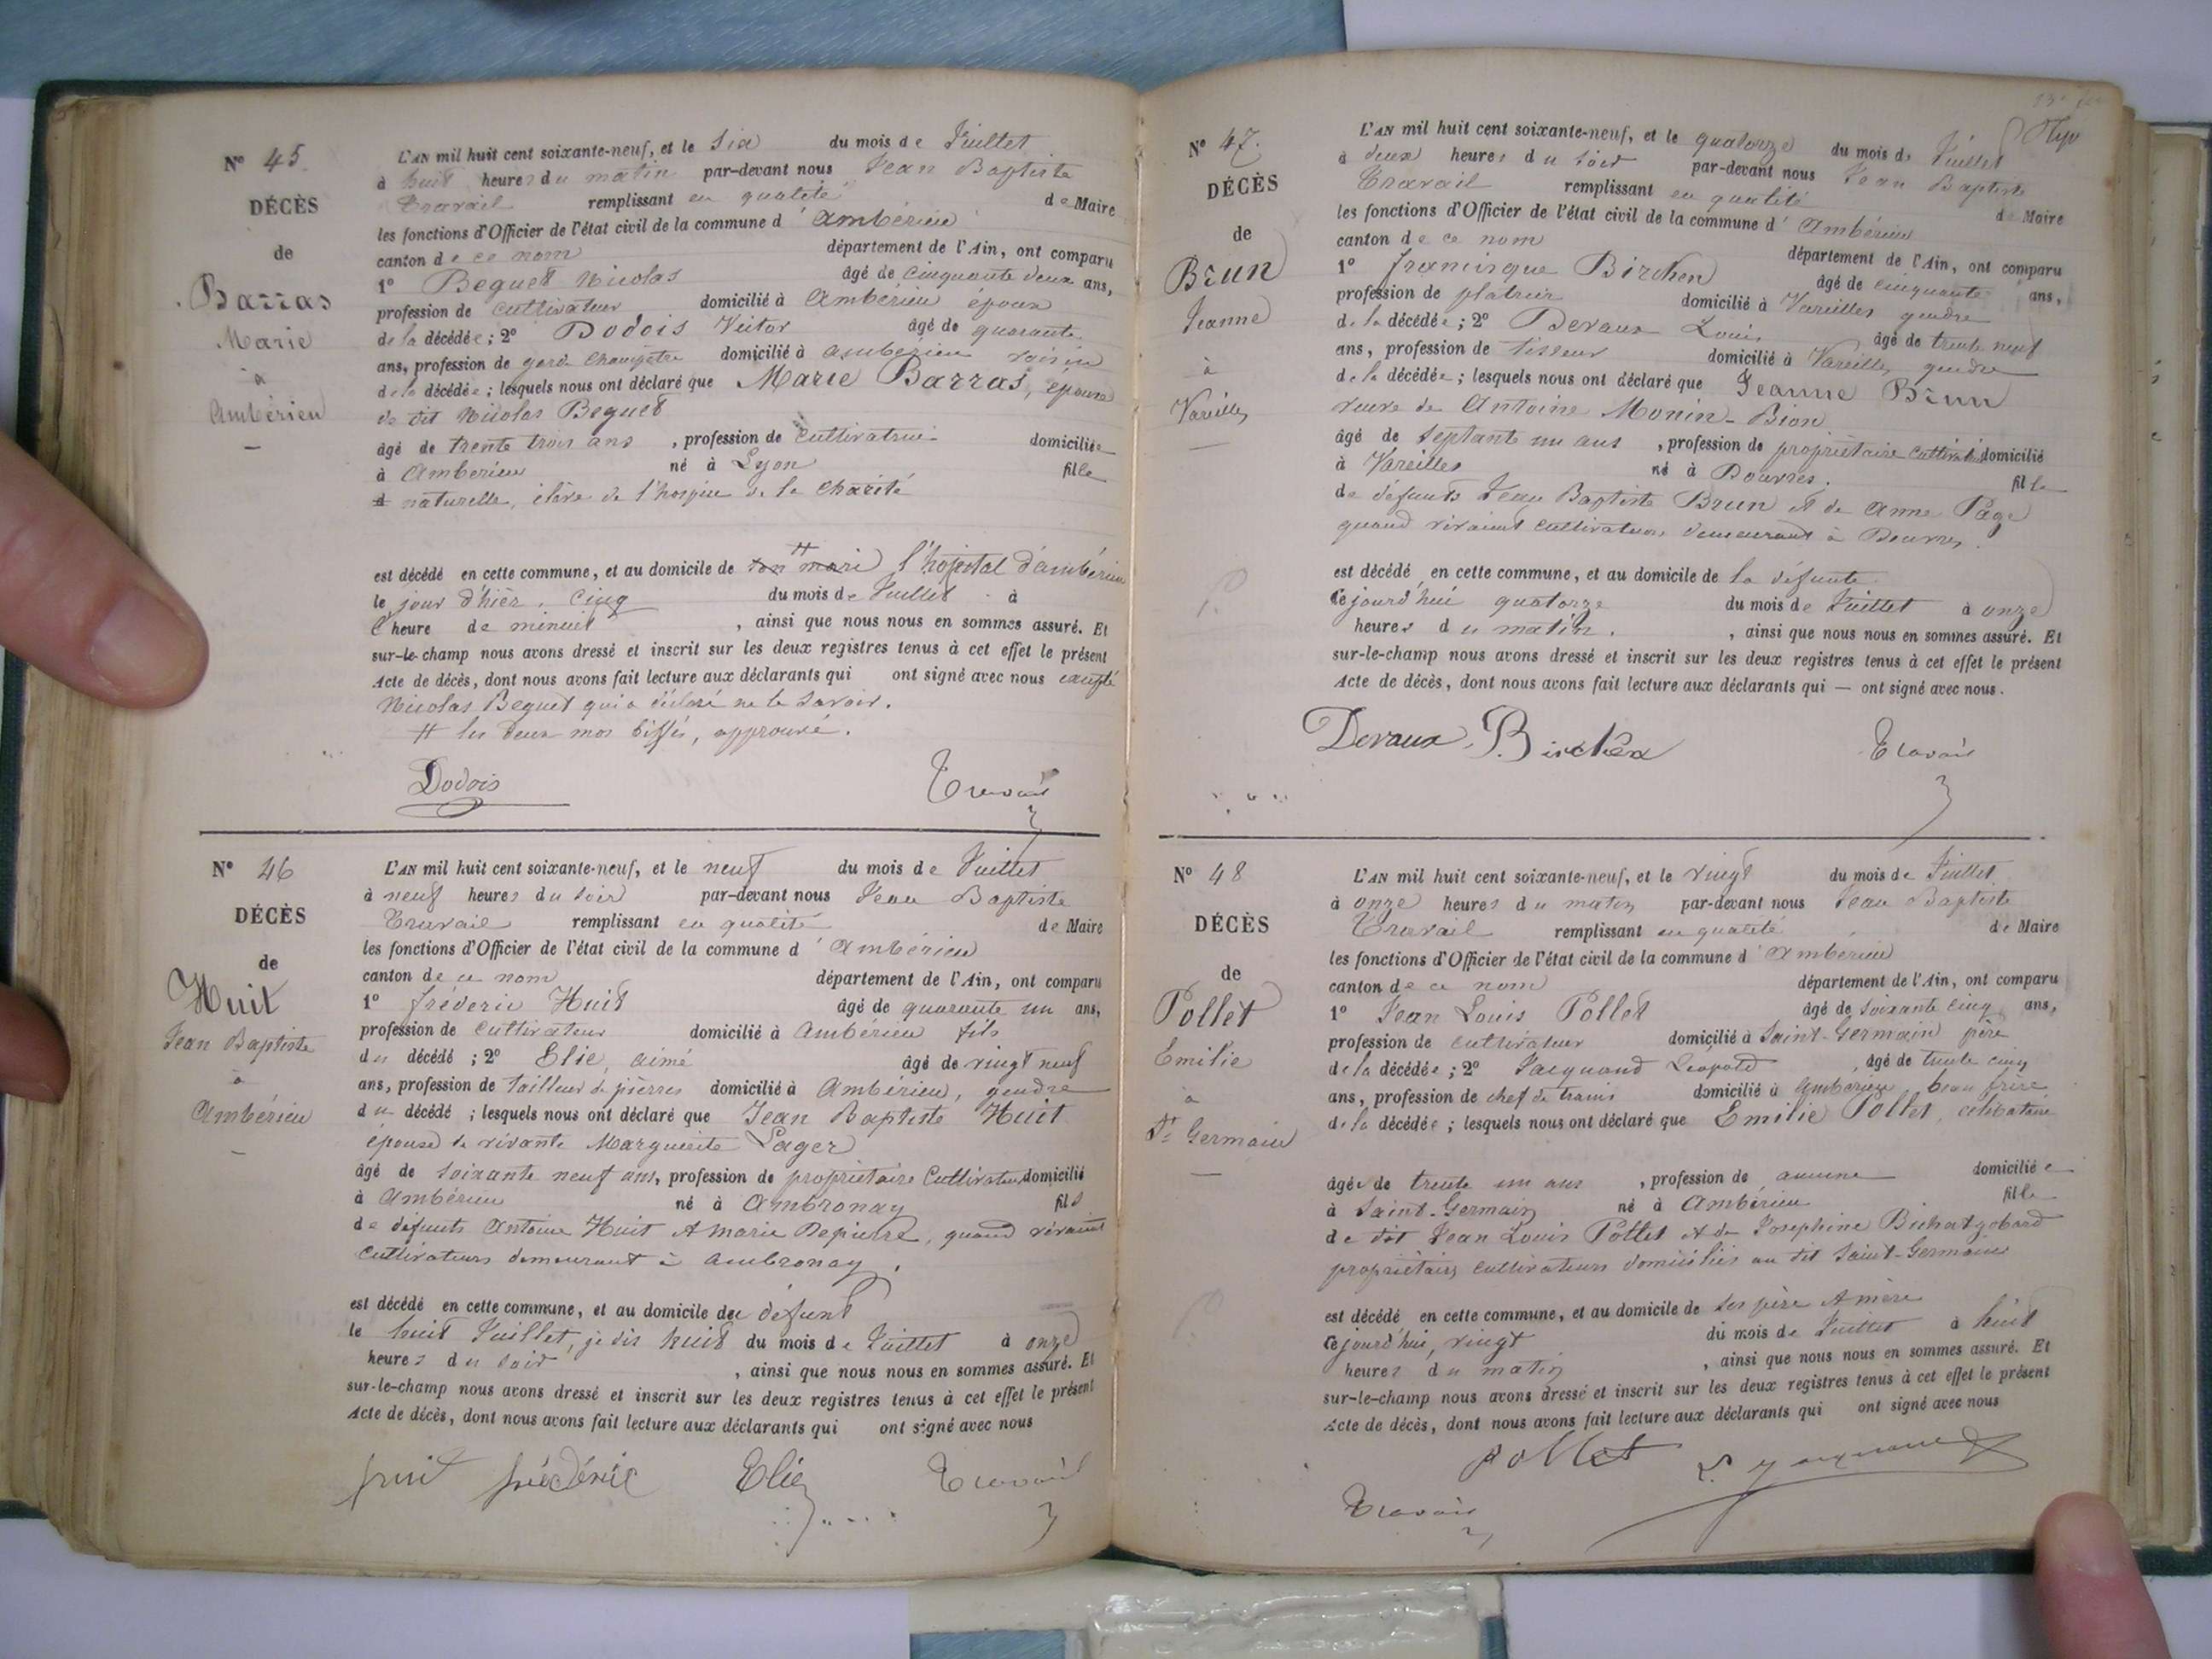 N° 45
DÉCÈS
de
Barras
Marie
à
Ambérieu
L'AN mil huit cent soixante-neuf, et le six du mois de Juillet
à huit heures du matin par-devant nous Jean Baptiste
Travail remplissant en qualité de Maire
les fonctions d'Officier de l'état civil de la commune d'Ambérieu
canton de ce nom département de l'Ain, ont comparu
1° Beguet Nicolas âgé de cinquante deux ans,
profession de cultivateur domicilié à Ambérieu époux
de la décédée ; 2° Dodois Victor âgé de quarante
ans, profession de garde champêtre domicilié à Ambérieu voisin
de la décédée ; lesquels nous ont déclaré que Marie Barras, épouse
de dit Nicolas Beguet
âgé de trente trois ans , profession de cultivatrice domiciliée
à Ambérieu né à Lyon fille
naturelle, élève de l'hospice de la Charité
est décédé en cette commune, et au domicile de son mari l'hôpital d'ambérieu
le jour d'hier, cinq du mois de Juillet à
l'heure de minuit , ainsi que nous nous en sommes assuré. Et
sur-le-champ nous avons dressé et inscrit sur les deux registres tenus à cet effet le présent
Acte de décès, dont nous avons fait lecture aux déclarants qui ont signé avec nous excepté
Nicolas Beguet qui a déclaré ne le savoir.
# les deux mos biffés, approuvé.
Dodois Travail
N° 46
DÉCÈS
de
Huit
Jean Baptiste
à
Ambérieu
L'AN mil huit cent soixante-neuf, et le neuf du mois de Juillet
à neuf heures du soir par-devant nous Jean Baptiste
Travail remplissant en qualité de Maire
les fonctions d'Officier de l'état civil de la commune d'Ambérieu
canton de ce nom département de l'Ain, ont comparu
1° fréderic Huit âgé de quarante un ans,
profession de cultivateur domicilié à Ambérieu fils
du décédé ; 2° Elie, aimé âgé de vingt neuf
ans, profession de tailleur de pierres domicilié à Ambérieu, gendre
du décédé ; lesquels nous ont déclaré que Jean Baptiste Huit
épouse de vivante Marguerite Lager
âgé de soixante neuf ans, profession de propriétaire Cultivateur domicilié
à Ambérieu né à Ambronay fils
de défunts Antoine Huit & Marie Depierre, quand vivaient
cultivateurs demeurant à Ambronay.
est décédé en cette commune, et au domicile du défunt
le huit Juillet, je dis huit du mois de Juillet à onze
heures du soir , ainsi que nous nous en sommes assuré. Et
sur-le-champ nous avons dressé et inscrit sur les deux registres tenus à cet effet le présent
Acte de décès, dont nous avons fait lecture aux déclarants qui ont signé avec nous
huit frédéric Elie Travail
N° 47.
DÉCÈS
de
Brun
Jeanne
à
Vareilles
L'AN mil huit cent soixante-neuf, et le quatorze du mois de Juillet
à deux heures du soir par-devant nous Jean Baptiste
Travail remplissant en qualité de Maire
les fonctions d'Officier de l'état civil de la commune d'Ambérieu
canton de ce nom département de l'Ain, ont comparu
1° francisque Birchen âgé de cinquante ans,
profession de platrier domicilié à Vareilles gendre
de la décédée ; 2° Devaux Louis âgé de trente neuf
ans, profession de tisseur domicilié à Vareilles, gendre
de la décédée ; lesquels nous ont déclaré que Jeanne Brun
veuve de Antoine Monin-Bion
âgé de septante un ans , profession de propriétaire cultivatrice domicilié
à Vareilles né à Douvres. fille
de défunts Jean Baptiste Brun et de Anne Page
quand vivaient cultivateurs demeurant à Douvres.
est décédé en cette commune, et au domicile de la défunte
Cejourd'hui quatorze du mois de Juillet à onze
heures du matin. , ainsi que nous nous en sommes assuré. Et
sur-le-champ nous avons dressé et inscrit sur les deux registres tenus à cet effet le présent
Acte de décès, dont nous avons fait lecture aux déclarants qui — ont signé avec nous.
Devaux Travail
N° 48
DÉCÈS
de
Pollet
Emilie
à
St Germain
L'AN mil huit cent soixante-neuf, et le vingt du mois de Juillet
à onze heures du matin par-devant nous Jean Baptiste
Travail remplissant en qualité de Maire
les fonctions d'Officier de l'état civil de la commune d'Ambérieu
canton de ce nom département de l'Ain, ont comparu
1° Jean Louis Pollet âgé de soixante cinq ans,
profession de cultivateur domicilié à Saint-Germain père
de la décédée ; 2° Jacquand Léopold , âgé de trente cinq
ans, profession de chef de trains domicilié à Ambérieu, beau frère
de la décédée ; lesquels nous ont déclaré que Emilie Pollet, célibataire
âgée de trente un ans , profession de aucune domiciliée
à Saint-Germain né à Ambérieu fille
de dit Jean Louis Pollet et de Josephine Bichat-gobard
propriétaires cultivateurs domiciliés au dit Saint-Germain
est décédé en cette commune, et au domicile de ses père & mère
Cejourd'hui, vingt du mois de Juillet à huit
heures du matin , ainsi que nous nous en sommes assuré. Et
sur-le-champ nous avons dressé et inscrit sur les deux registres tenus à cet effet le présent
Acte de décès, dont nous avons fait lecture aux déclarants qui ont signé avec nous
pollet
Travail